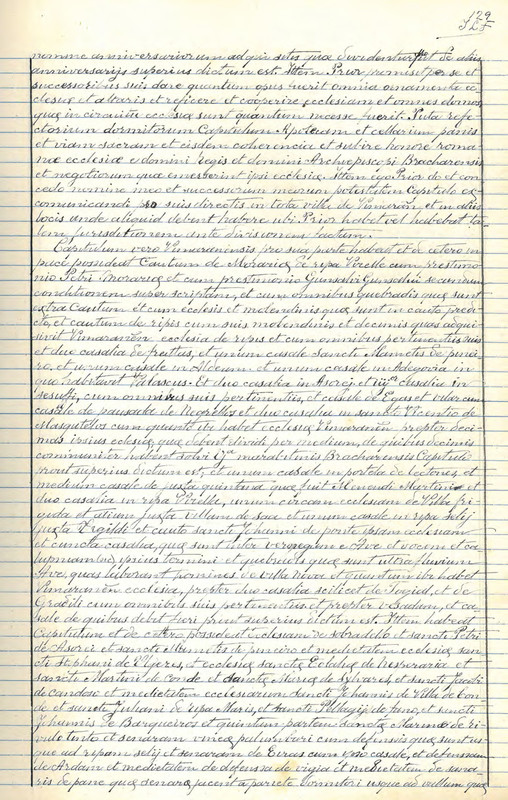 129
nomine anniversariorum adquisitis quæ dividentur sicut de aliis
anniversarijs superius dictum est. Item Prior promisit per se et
successoribus suis dare quantum opus fuerit omnia ornamenta ec-
clesiæ et altaris et reficere et cooperire ecclesiam et omnes domos
quæ in circuitu ecclesiæ sunt quantum necesse fuerit. Puta refe-
ctorium dormitorium Capitulum Apotecam et cellarium panis
et viam sacram et eisdem coherencia et subire honore roma-
næ ecclesiæ et domini Regis et domini Archiepiscopi Bracharensis
et negotiorum quæ emerserint ipsi ecclesiæ. Item ego Prior do et con-
cedo nomine meo et successorum meorum potestatem Capitulo ex-
comunicandi pro suis directis in tota villa de Vimaran et in aliis
locis unde aliquid debent habere ubi Prior habet vel habebat ta-
lem jurisdictionem ante divisionem factam.
Capitulum vero Vimaranensis pro sua parte habeat et de cetero in
pace possideat Cautum de Moraria de ripa Vizelle cum prestimo-
nio Petri Moraria et cum prestimonio Gunsalvi Gunsalvi secundum
conditionem super scriptam, et cum omnibus quebradis quæ sunt
extra Cautum et cum ecclesis et molendinis quæ sunt in cauto predi-
cto, et cautum de ripis cum suis molendinis et decimis quas adqui-
sivit Vimaranen. ecclesia de ripis et cum omnibus pertinentiis suis
et duo casalia de freitas, et unum casale sancte Mametis de pinei-
ro, et unum casale in Aldoam et unum casale in Adegoria in
quo habitavit Valascus. Et duo casalia in Asorej et iiij.or Casalia in
cum omnibus suis pertinentiis, et casale de Egas et vilar cum
casale de pausada de Negrellos et duo casalia in sancte Vicentio de
Masquitellos cum quanto ibi habet ecclesia Vimaranen. propter deci-
mas ipsius eclesiæ quæ debent dividi per medium, de quibus decimis
comuniter habent solvi maralitinis Bracharensis Capitulo
prout superius dictum est, et unum casale in portela de lectones et
medium casale de justa quintana quæ fuit Menendi Martini et
duo casalia in ripa Vizelle, unum circam ecclesiam de Villa fri-
gida et alium juxta villam de sax et unum casale in ripa Selij
juxta et cauto sancte Johanni de ponte ipsam ecclesiam
et cuncta casalia, quæ sunt inter et Ave et vocem et ca-
lupmaniu ipsius termini et quebradis quæ sunt ultra fluvium
Ave, quas laborant homines de villa nova et quantum ibi habet
Vimaranen ecclesia, propter duo casalia scilicet de Togial, et de
cum omnibus suis pertinentiis et propter Vadum, et ca-
sale de quibus debet fieri prout superius dictum est. Item habeat
Capitulum et de cettero possideat ecclesiam de sobradello et sancte Petri
de Asorei et sancte Mametis de pineiro et medietatem ecclesiæ san-
cte Stephani de et ecclesia sanctæ Eolaliæ de Nesperaria et
sancte Martini de Conde et sanctæ Mariæ de Sylvares, et sancti Jacobi
de candoso et medietatem ecclesiarum sancte Johannis de Villa de Con-
de et sancte Juliani de ripa Maris, et sancte Pellagij de fano, et sancte
Johannis de Barqueiros et quintam partem sanctæ Marinæ de ri-
vulo tinto et senaram vineæ palumbarii cum defensis quæ sunt us-
que ad ripam selij et senaram de Eiras cum ipso casale, et defensam
de Ardam et medietatem de defensa de virgia et medietatem de sena-
ris de pane quæ senaræ jacent a pariete Dormitori usque ad vallum quæ